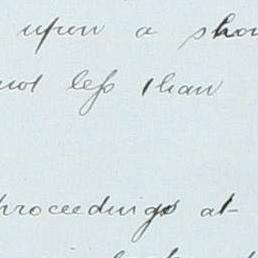 upon a sho
not less than
proceedings at